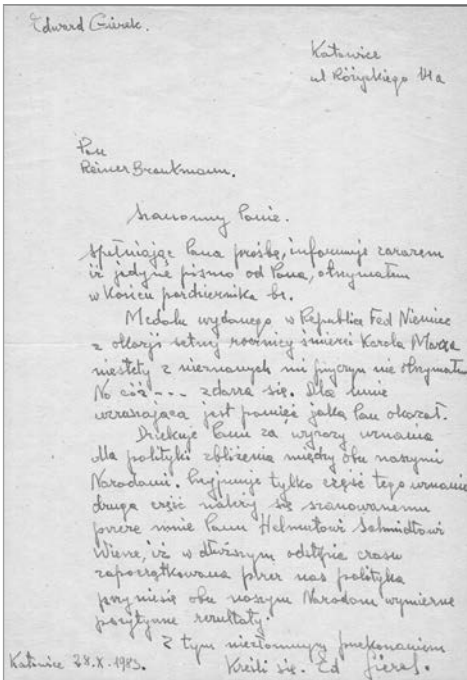 Edward Gierek.
Katowice
ul Różyckiego 14a
Pan
Reiner Brankmann.
Szanowny Panie.
Spełniając Pana prośbę, informuję zarazem
iż jedyne pismo od Pana, otrzymałem
w końcu października br.
Medalu wydanego w Republice Fed Niemiec
z okazji setnej rocznicy śmierci Karola Marxa
niestety z nieznanych mi przyczyn nie otrzymałem
No cóż --- zdarza się. Dla mnie
wzruszająca jest pamięć jaką Pan okazał.
Dziękuję Panu za wyrazy uznania
dla polityki zbliżenia między obu naszymi
Narodami. Przyjmuję tylko część tego uznania
druga część należy się szanowanemu
przeze mnie Panu Helmutowi Schmidtowi
Wierzę, iż w dłuższym odstępie czasu
zapoczątkowana przez nas polityka
przyniesie obu naszym Narodom wymierne
pozytywne rezultaty.
Z tym niezłomnym przekonaniem
Katowice 28.X.1983. Kreśli się. Ed Gierek.